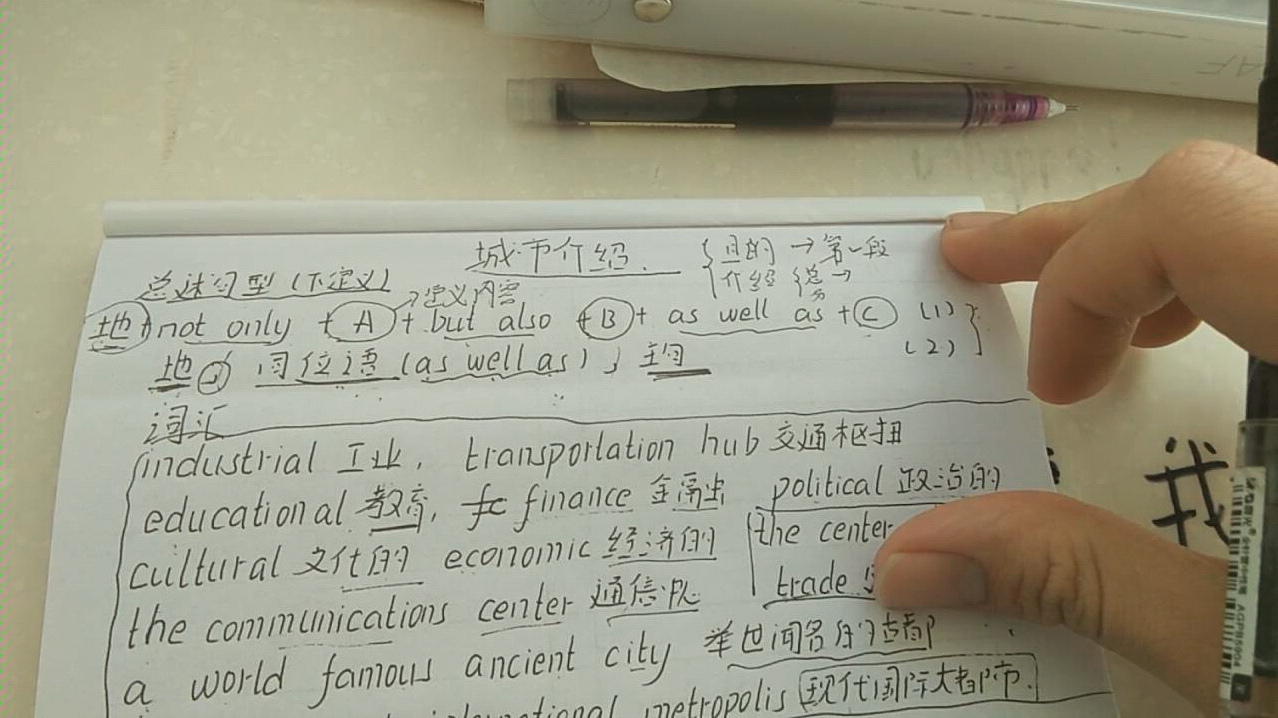 城市介绍. {目的 → 第一段
总述句型(下定义) 介绍 {总 →
→定义内容
地 + not only + A + but also + B + as well as + C (1)
地 同位语(as well as), 主句 (2)
词汇
industrial 工业, transportation hub 交通枢扭
educational 教育, finance 金融 political 政治的
cultural 文化的 economic 经济的 the center
the communications center 通信 trade
a world famous ancient city 举世闻名的古都
international metropolis 现代国际大都市.
我
AGPB5904